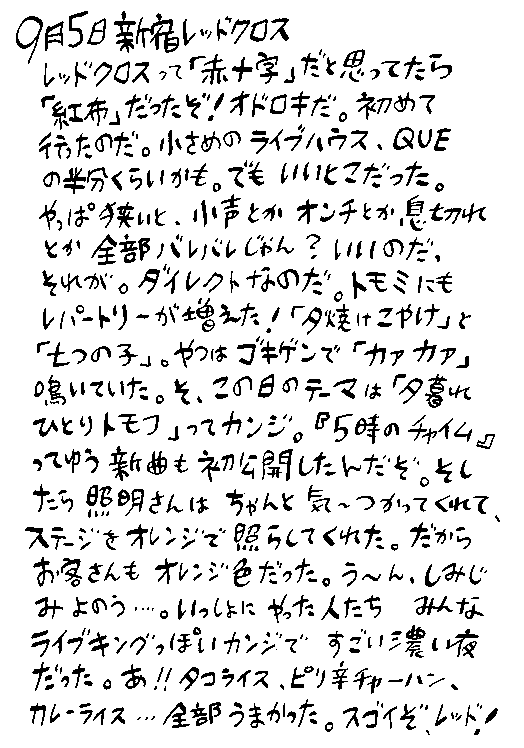 9月5日 新宿レッドクロス
レッドクロスって「赤十字」だと思ってたら
「紅布」だったぞ!オドロキだ。初めて
行ったのだ。小さめのライブハウス、QUE
の半分くらいかも。でもいいとこだった。
やっぱ狭いと、小声とかオンチとか息切れ
とか全部バレバレじゃん?いいのだ、
それが。ダイレクトなのだ。トモミにも
レパートリーが増えた!「夕焼けこやけ」と
「七つの子」。やつはゴキゲンで「カァカァ」
鳴いていた。そ、この日のテーマは「夕暮れ
ひとりトモフ」ってカンジ。『5時のチャイム』
ってゆう新曲も初公開したんだぞ。そし
たら照明さんはちゃんと気〜つかってくれて、
ステージをオレンジで照らしてくれた。だから
お客さんもオレンジ色だった。う〜ん、しみじ
みよのう…。いっしょにやった人たち みんな
ライブキングっぽいカンジで すごい濃い夜
だった。あ!!タコライス、ピリ辛チャーハン、
カレーライス…全部うまかった。スゴイぞ、レッド!